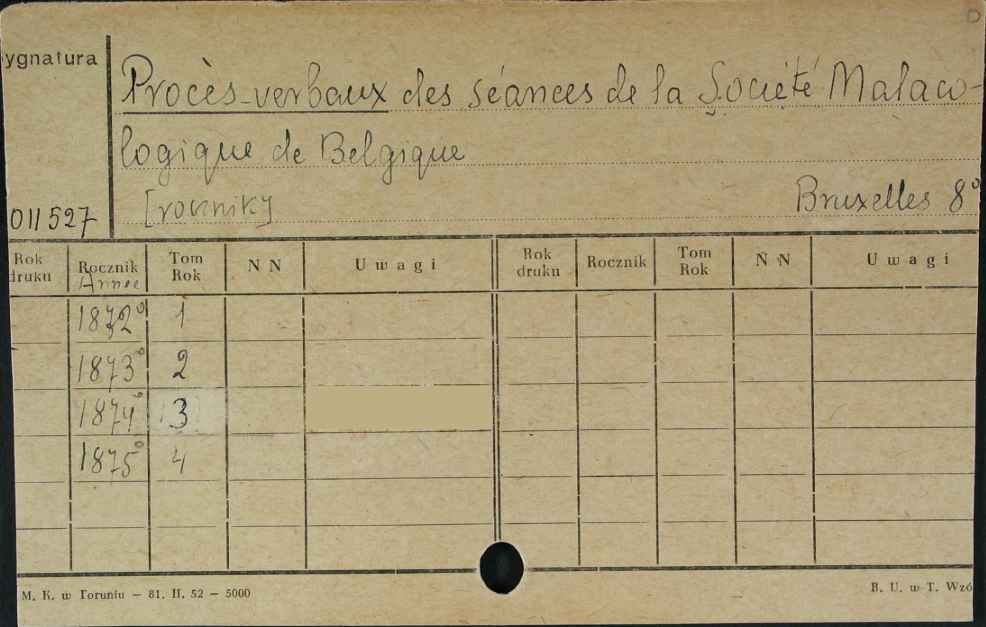 ygnatura
Procès-verbaux des séances de la Société Malaco-
logique de Belgique
[rocznik]
Bruxelles 8°
011527
Rok druku Rocznik Tom Rok N N Uwagi Rok druku Rocznik Tom Rok N N Uwagi
Année
1872° 1
1873° 2
1874° 3
1875° 4
M. K. w Toruniu — 81. II. 52 — 5000
B. U. w T. Wzó